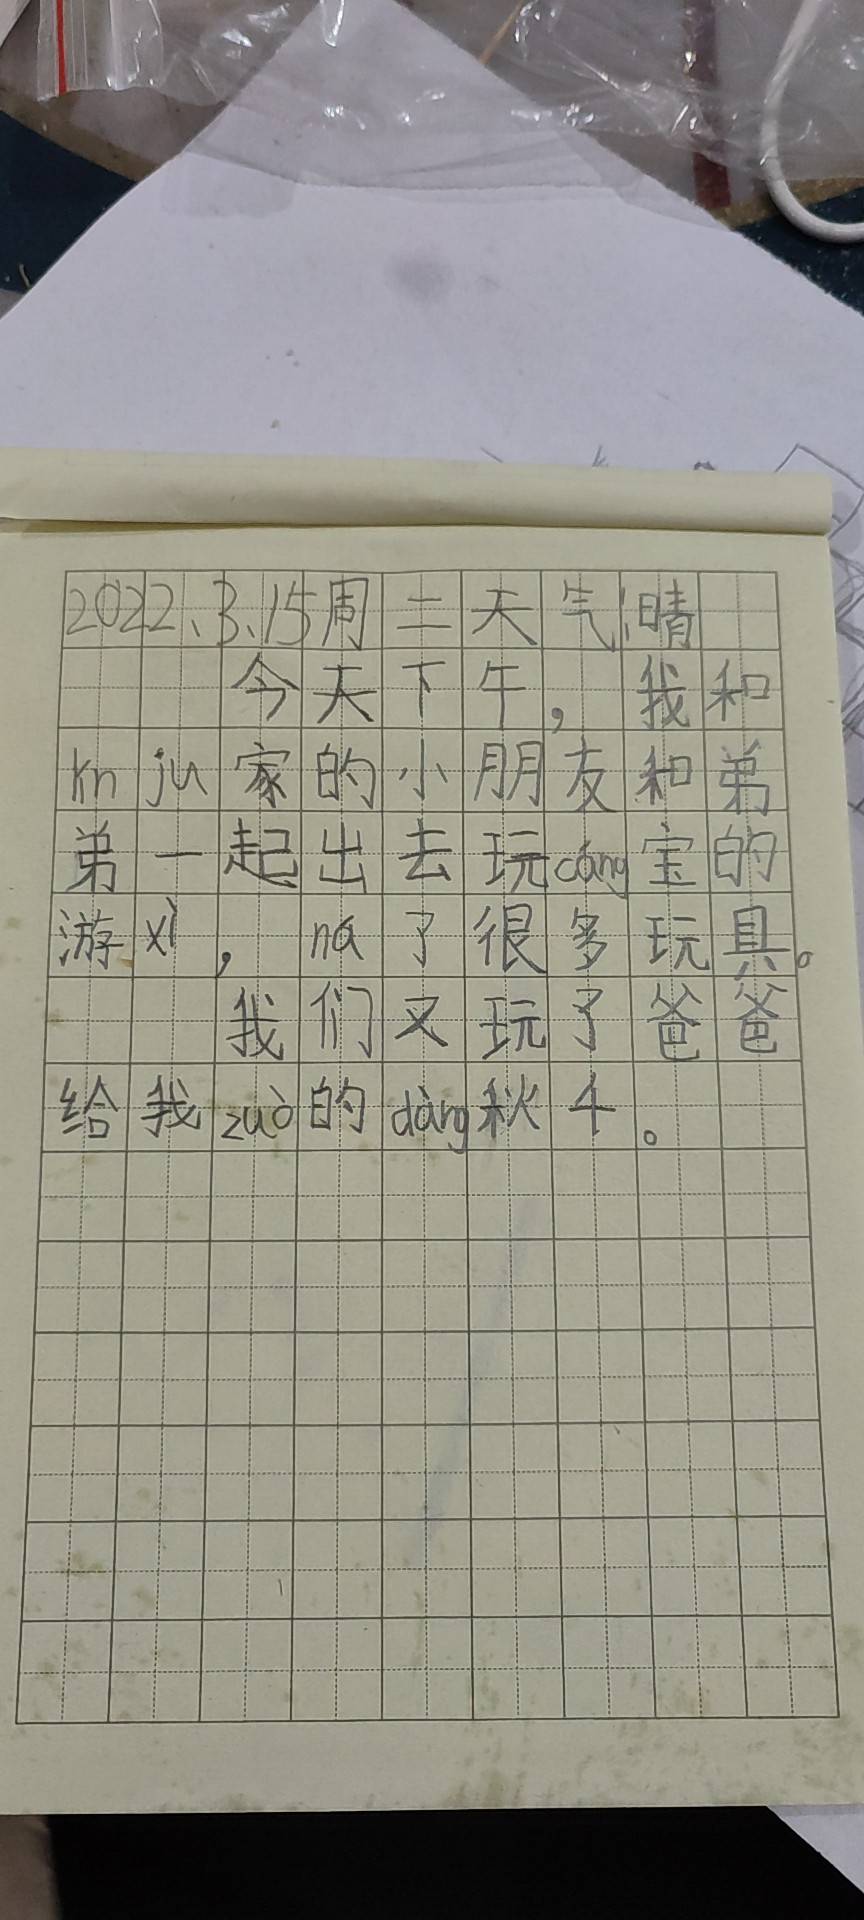 2022、3、15周二天气:晴
今天下午，我和
lín ju家的小朋友和弟
弟一起出去玩cáng宝的
游xì，ná了很多玩具。
我们又玩了爸爸
给我zuò的dàng秋千。